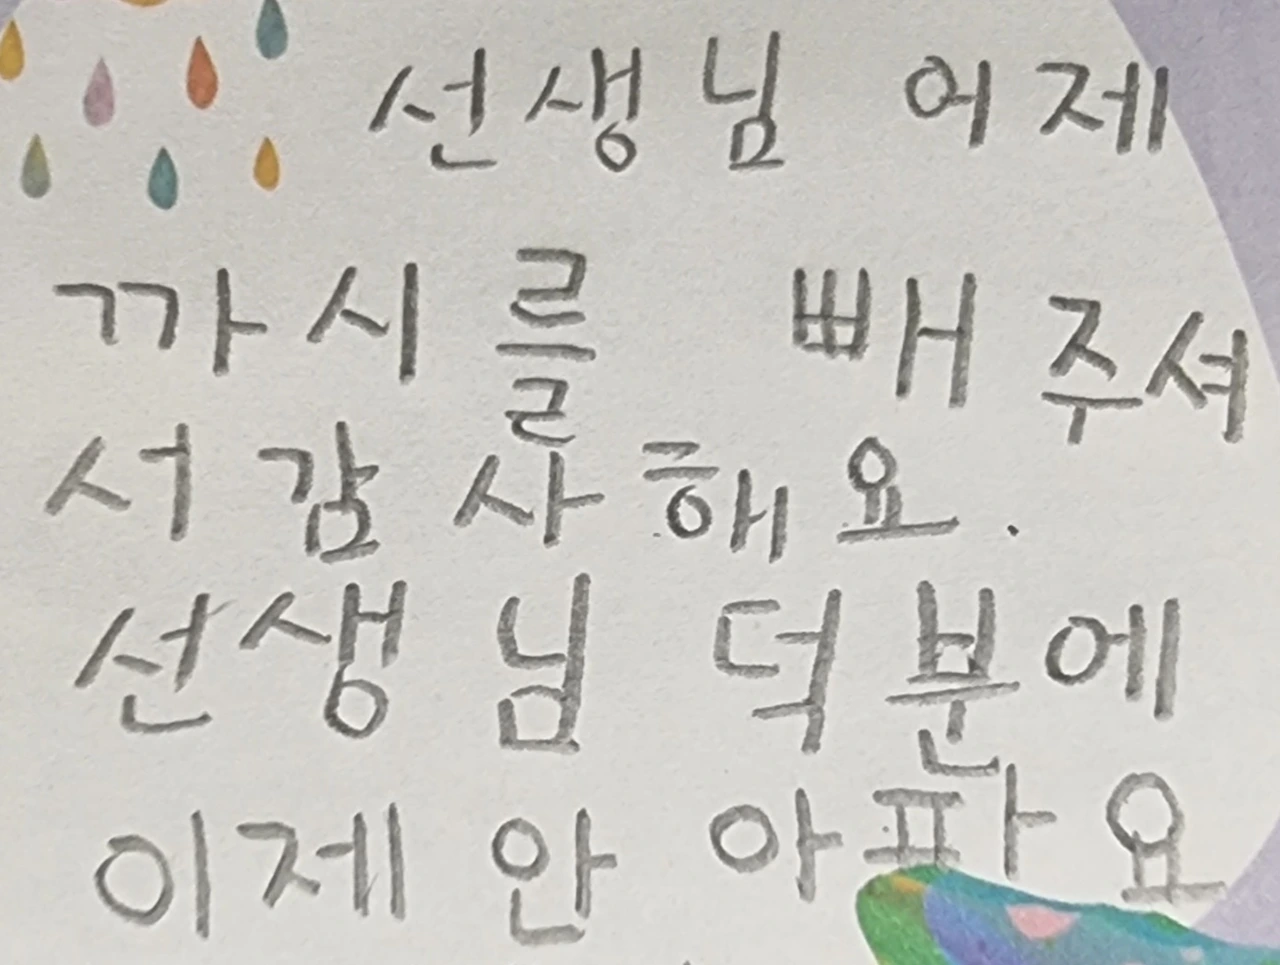 선생님 어제
까시를 빼주셔
서 감사해요.
선생님 덕분에
이제 안 아파요